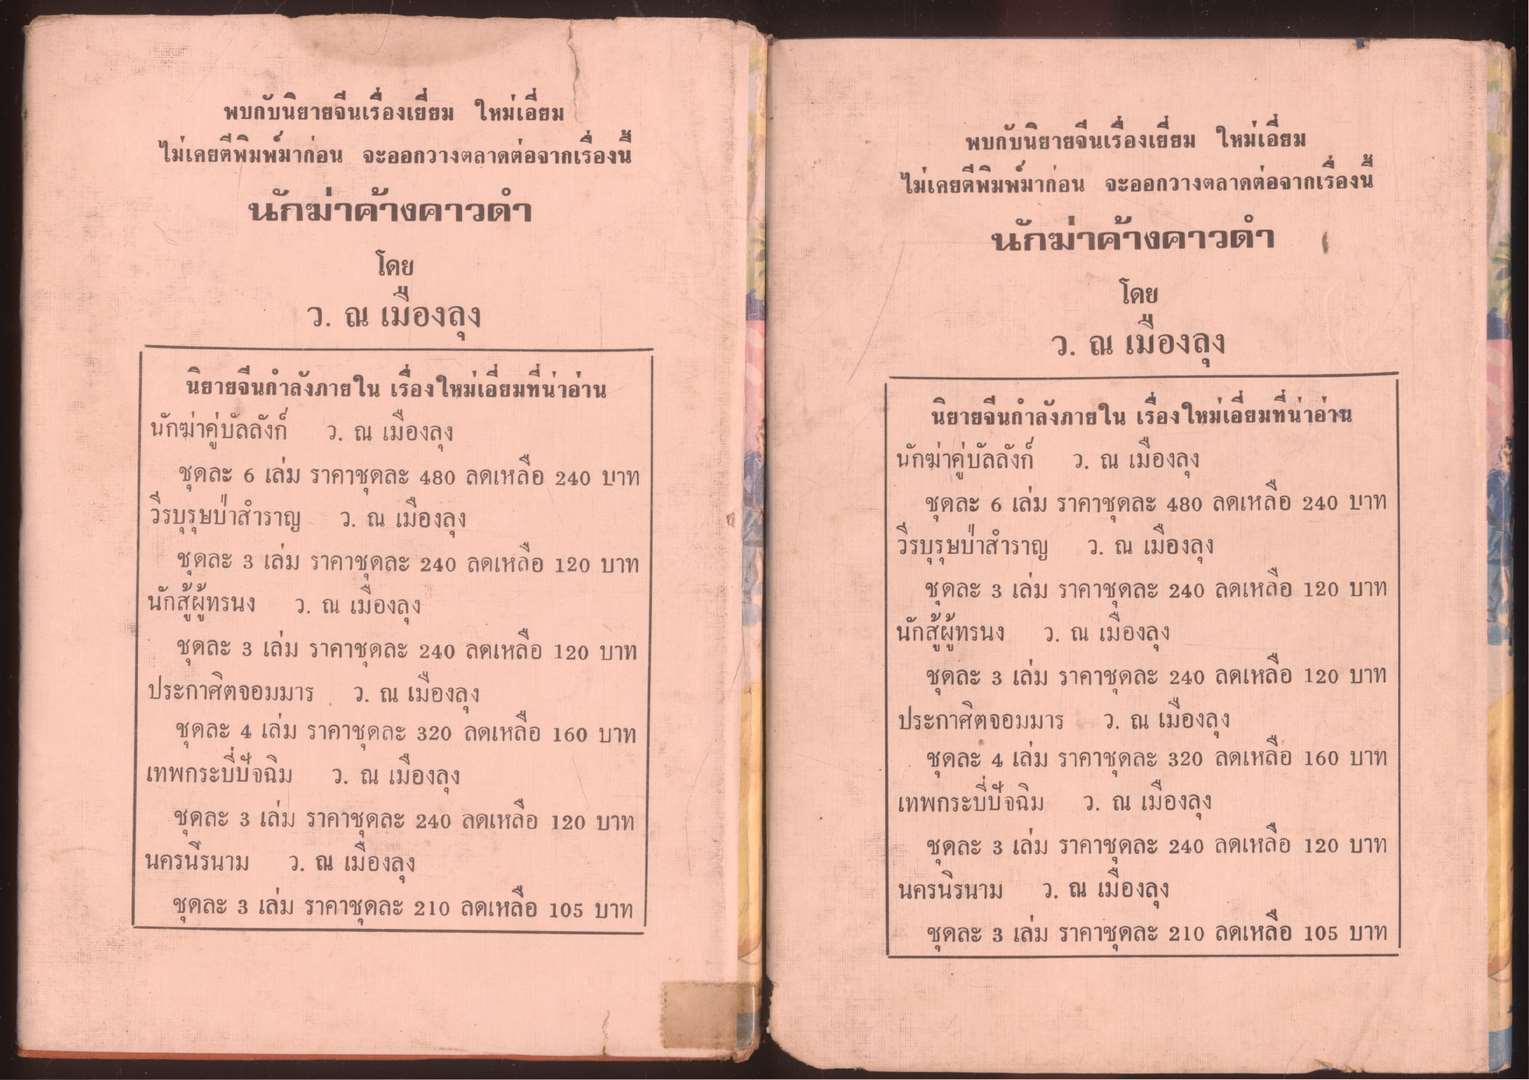 พบกับนิยายจีนเรื่องเยี่ยม ใหม่เอี่ยม
ไม่เคยตีพิมพ์มาก่อน จะออกวางตลาดต่อจากเรื่องนี้
นักฆ่าค้างคาวดำ
โดย
ว. ณ เมืองลุง
นิยายจีนกำลังภายใน เรื่องใหม่เอี่ยมที่น่าอ่าน
นักฆ่าคู่บัลลังก์ ว. ณ เมืองลุง
ชุดละ 6 เล่ม ราคาชุดละ 480 ลดเหลือ 240 บาท
วีรบุรุษป่าสำราญ ว. ณ เมืองลุง
ชุดละ 3 เล่ม ราคาชุดละ 240 ลดเหลือ 120 บาท
นักสู้ผู้ทรนง ว. ณ เมืองลุง
ชุดละ 3 เล่ม ราคาชุดละ 240 ลดเหลือ 120 บาท
ประกาศิตจอมมาร ว. ณ เมืองลุง
ชุดละ 4 เล่ม ราคาชุดละ 320 ลดเหลือ 160 บาท
เทพกระบี่ปัจฉิม ว. ณ เมืองลุง
ชุดละ 3 เล่ม ราคาชุดละ 240 ลดเหลือ 120 บาท
นครนิรนาม ว. ณ เมืองลุง
ชุดละ 3 เล่ม ราคาชุดละ 210 ลดเหลือ 105 บาท
พบกับนิยายจีนเรื่องเยี่ยม ใหม่เอี่ยม
ไม่เคยตีพิมพ์มาก่อน จะออกวางตลาดต่อจากเรื่องนี้
นักฆ่าค้างคาวดำ
โดย
ว. ณ เมืองลุง
นิยายจีนกำลังภายใน เรื่องใหม่เอี่ยมที่น่าอ่าน
นักฆ่าคู่บัลลังก์ ว. ณ เมืองลุง
ชุดละ 6 เล่ม ราคาชุดละ 480 ลดเหลือ 240 บาท
วีรบุรุษป่าสำราญ ว. ณ เมืองลุง
ชุดละ 3 เล่ม ราคาชุดละ 240 ลดเหลือ 120 บาท
นักสู้ผู้ทรนง ว. ณ เมืองลุง
ชุดละ 3 เล่ม ราคาชุดละ 240 ลดเหลือ 120 บาท
ประกาศิตจอมมาร ว. ณ เมืองลุง
ชุดละ 4 เล่ม ราคาชุดละ 320 ลดเหลือ 160 บาท
เทพกระบี่ปัจฉิม ว. ณ เมืองลุง
ชุดละ 3 เล่ม ราคาชุดละ 240 ลดเหลือ 120 บาท
นครนิรนาม ว. ณ เมืองลุง
ชุดละ 3 เล่ม ราคาชุดละ 210 ลดเหลือ 105 บาท